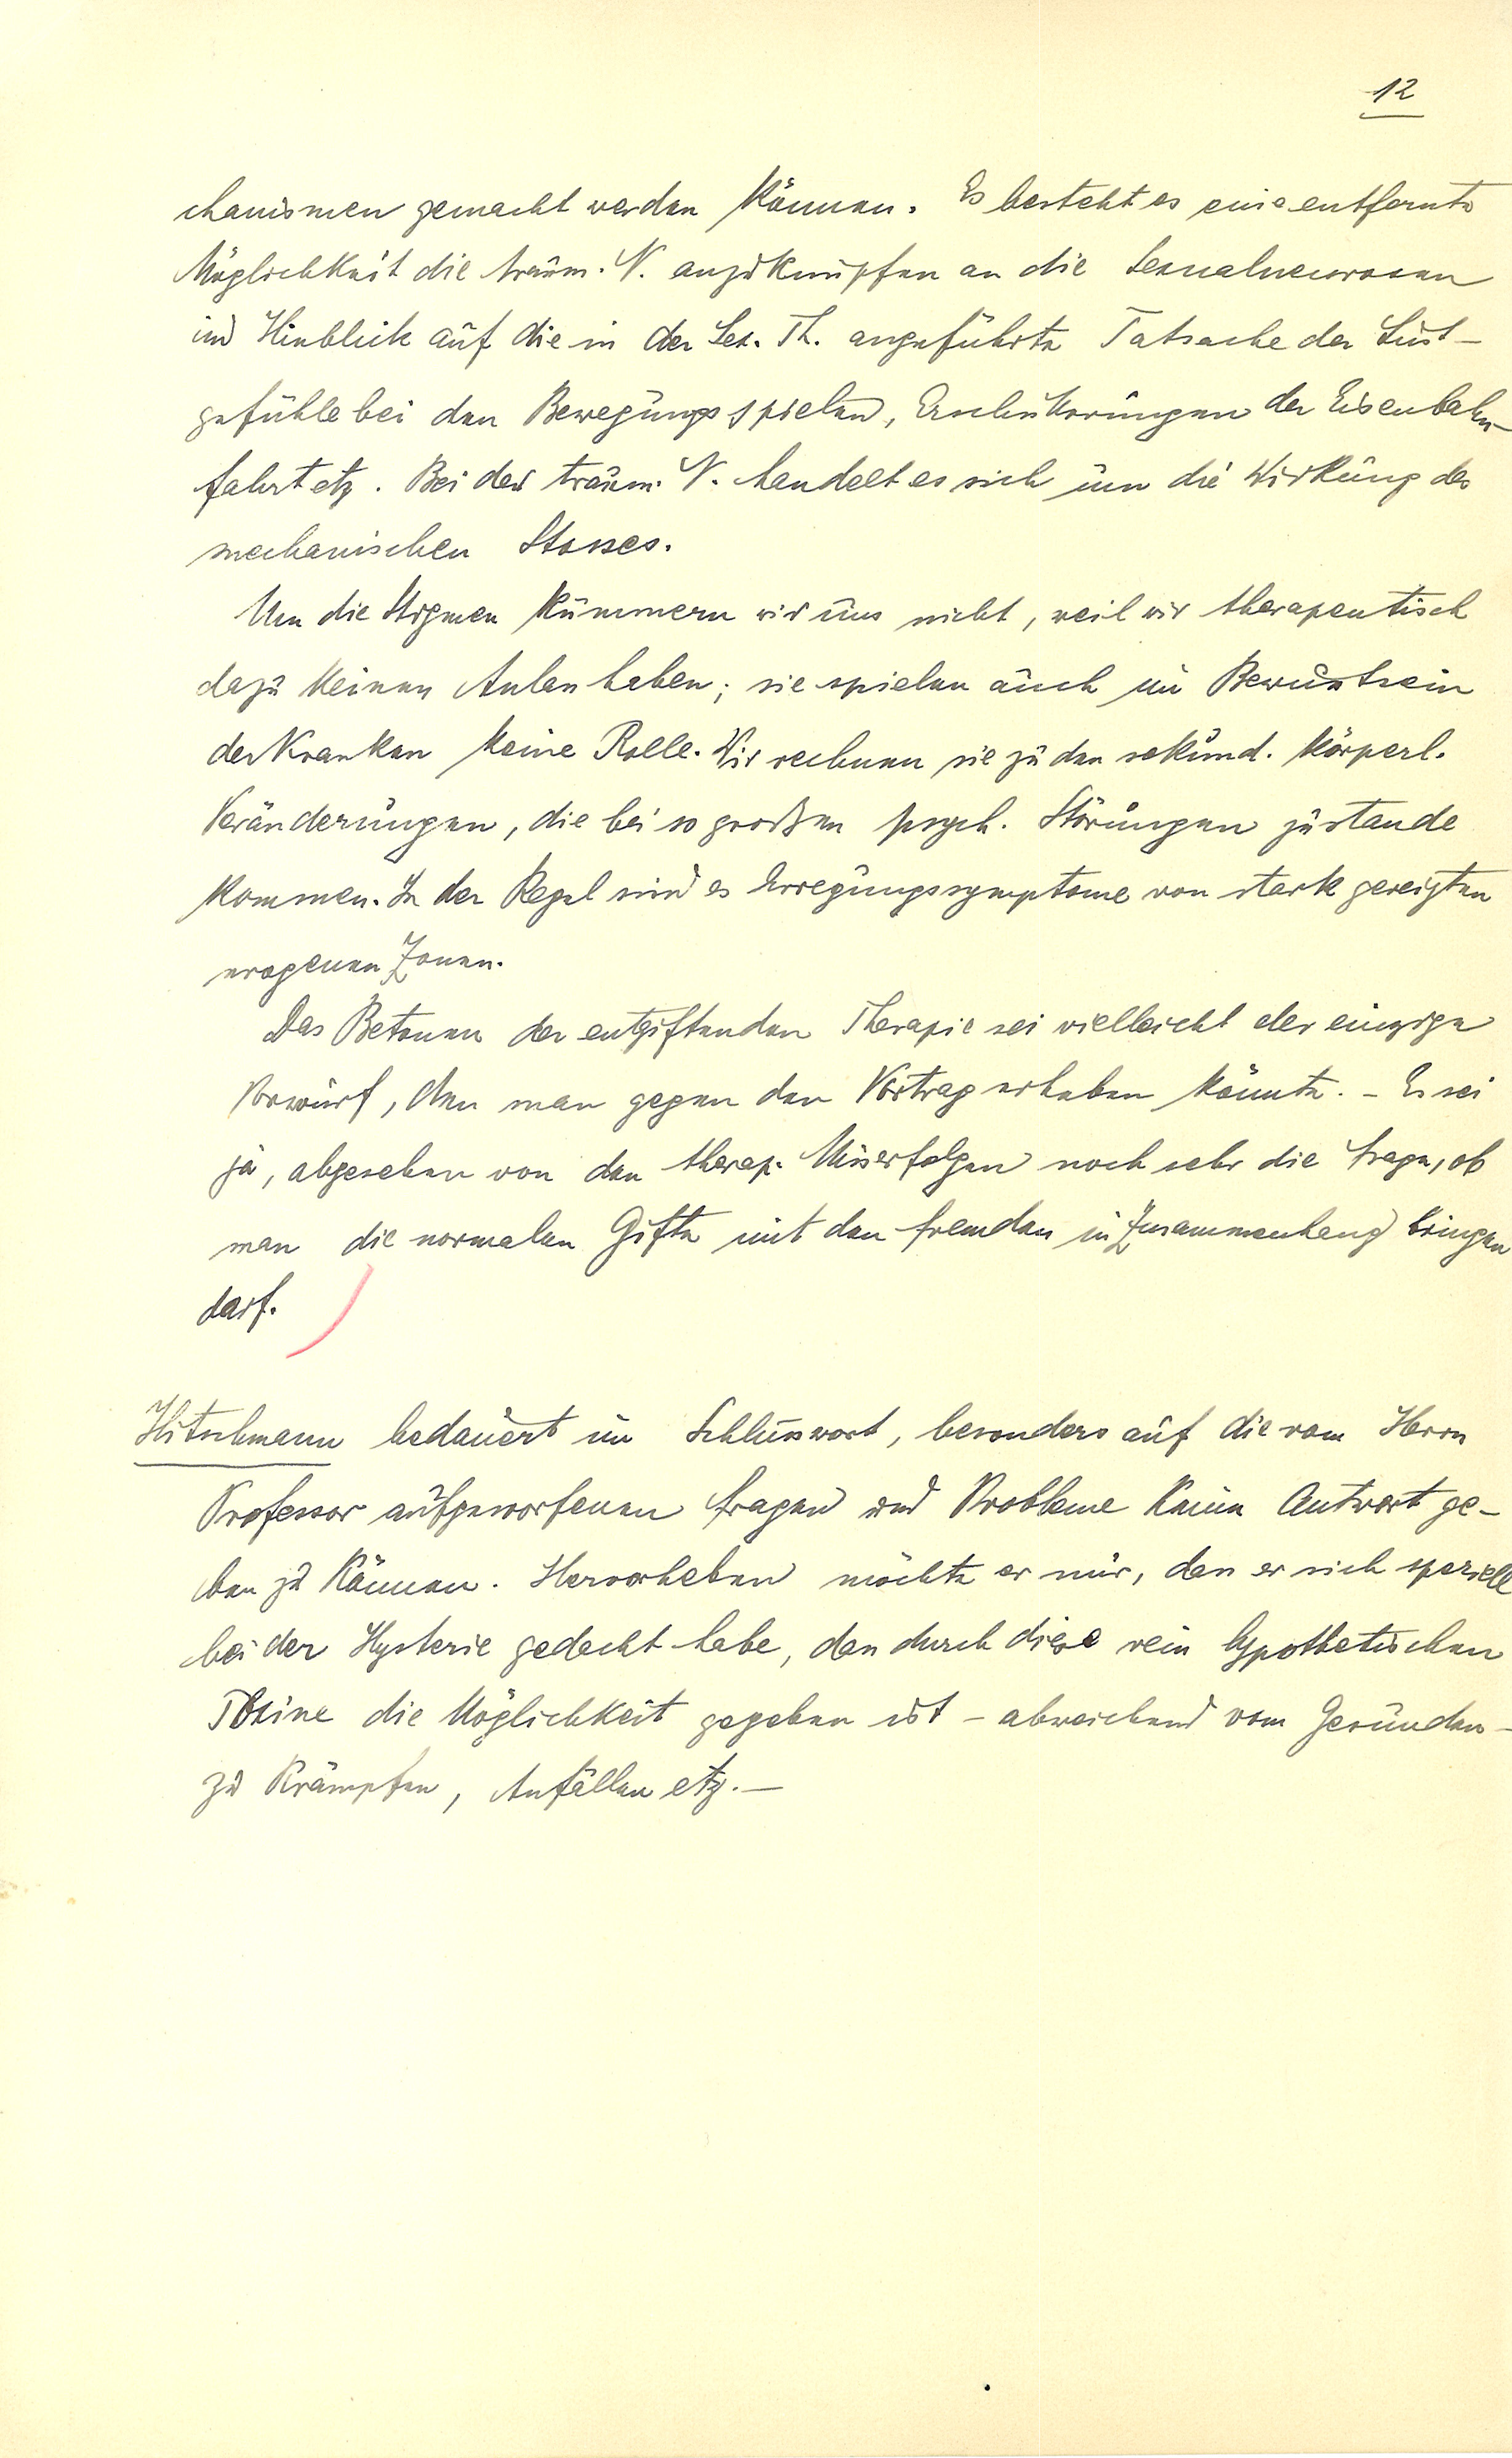 12
chanismen gemacht werden können. Es besteht es eine entfernte
Möglichkeit die traum. N. anzuknüpfen an die Sexualneurosen
im Hinblick auf die in der Sex. Th. angeführte Tatsache der Lust-
gefühle bei den Bewegungsspielen, Erschütterungen der Eisenbahn-
fahrt etz. Bei der traum. N. handelt es sich um die Wirkung des
mechanischen Stosses.
Um die Stigmen kümmern wir uns nicht, weil wir therapeutisch
dazu keinen Anlass haben; sie spielen auch im Bewusstsein
der Kranken keine Rolle. Wir rechnen sie zu den sekund. körperl.
Veränderungen, die bei so großen psych. Störungen zustande
kommen. In der Regel sind es Erregungssymptome von stark gereizten
erogenen Zonen.
Das Betonen der entgiftenden Therapie sei vielleicht der einzige
Vorwurf, den man gegen den Vortrag erheben könnte. – Es sei
ja, abgesehen von den therap. Misserfolgen noch sehr die Frage, ob
man die normalen Gifte mit den fremden in Zusammenhang bringen
darf.
Hitschmann bedauert im Schlusswort, besonders auf die vom Herrn
Professor aufgeworfenen Fragen und Probleme keine Antwort ge-
ben zu können. Hervorheben möchte er nur, dass er sich speziell
bei der Hysterie gedacht habe, dass durch diese rein hypothetischen
Toxine die Möglichkeit gegeben ist – abweichend vom Gesunden –
zu Krämpfen, Anfällen etz. –